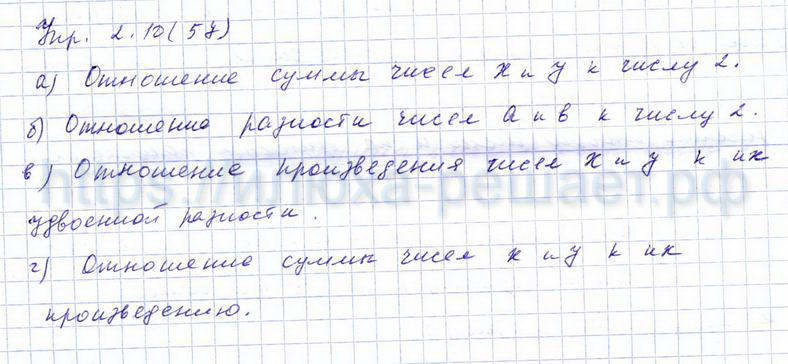 Упр. 2.10(57)
а) Отношение суммы чисел х и у к числу 2.
б) Отношение разности чисел а и в к числу 2.
в) Отношение произведения чисел х и у к их
удвоенной разности.
г) Отношение суммы чисел х и у к их
произведению.